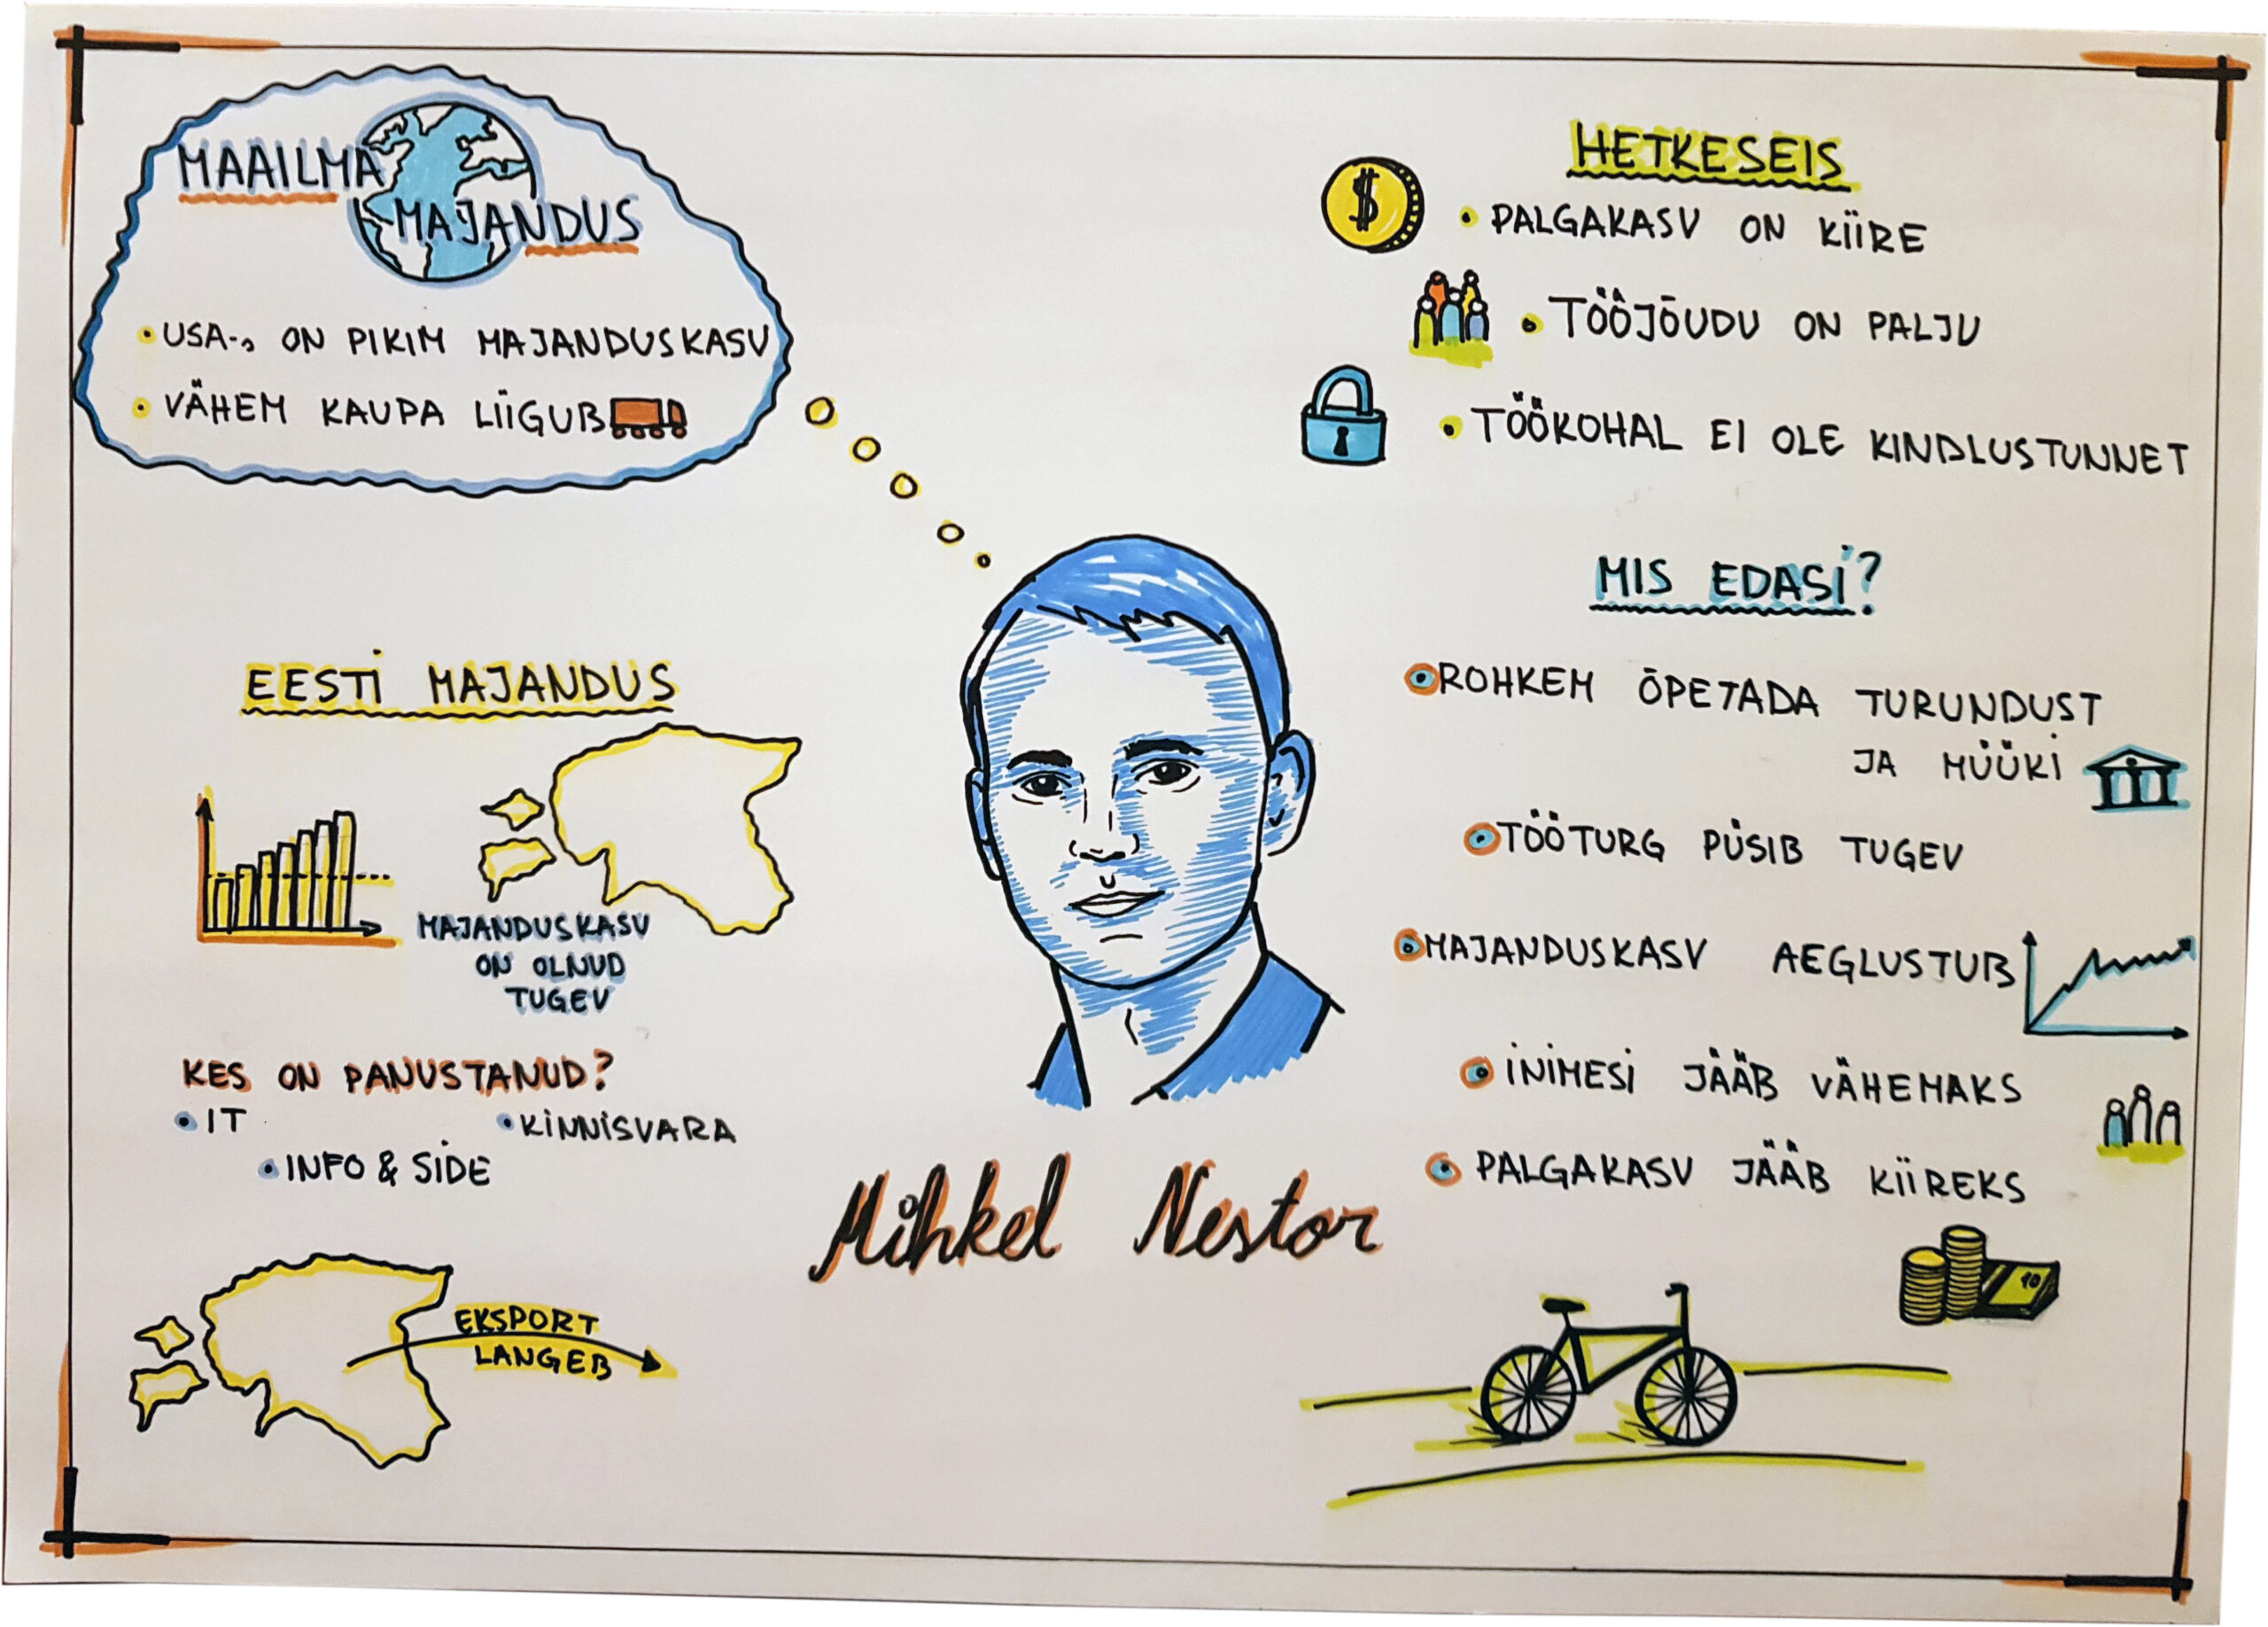 MAAILMA
MAJANDUS
• USA-s ON PIKIM MAJANDUSKASV
• VÄHEM KAUPA LIIGUB
EESTI MAJANDUS
MAJANDUSKASV
ON OLNUD
TUGEV
KES ON PANUSTANUD?
• IT
• KINNISVARA
• INFO & SIDE
EKSPORT
LANGEB
Mihkel Nestor
HETKESEIS
$
• PALGAKASV ON KIIRE
• TÖÖJÕUDU ON PALJU
• TÖÖKOHAL EI OLE KINDLUSTUNNET
MIS EDASI?
• ROHKEM ÕPETADA TURUNDUST
JA MÜÜKI
• TÖÖTURG PÜSIB TUGEV
• MAJANDUSKASV AEGLUSTUB
• INIMESI JÄÄB VÄHEMAKS
• PALGAKASV JÄÄB KIIREKS
10